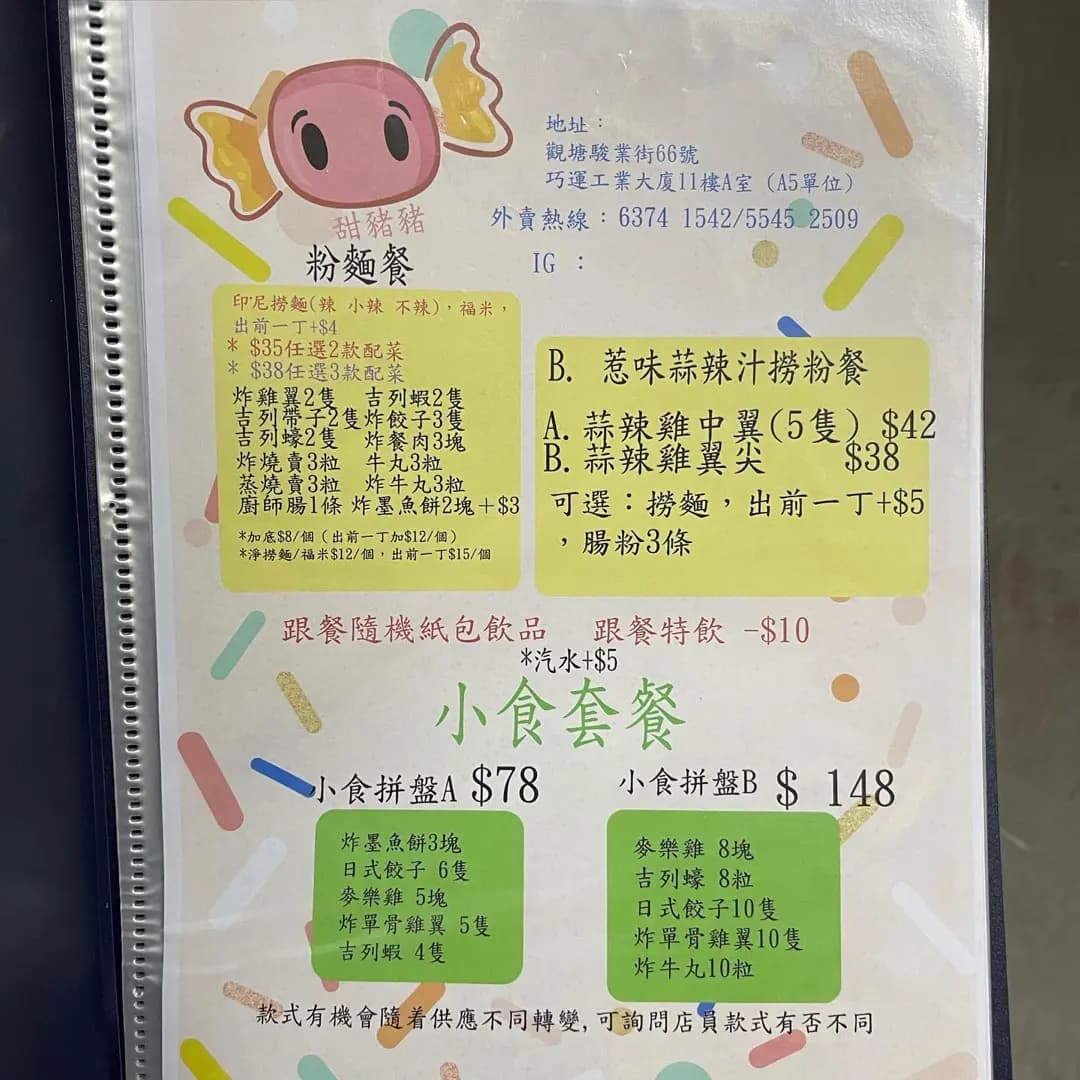 地址：
觀塘駿業街66號
巧運工業大廈11樓A室（A5單位）
外賣熱線：6374 1542/5545 2509
IG ：
甜豬豬
粉麵餐
印尼撈麵(辣 小辣 不辣)，福米，
出前一丁+$4
* $35任選2款配菜
* $38任選3款配菜
炸雞翼2隻 吉列蝦2隻
吉列帶子2隻 炸餃子3隻
吉列蠔2隻 炸餐肉3塊
炸燒賣3粒 牛丸3粒
蒸燒賣3粒 炸牛丸3粒
廚師腸1條 炸墨魚餅2塊＋$3
*加底$8/個（出前一丁加$12/個）
*淨撈麵/福米$12/個，出前一丁$15/個
B. 惹味蒜辣汁撈粉餐
A. 蒜辣雞中翼(5隻) $42
B. 蒜辣雞翼尖 $38
可選：撈麵，出前一丁+$5
，腸粉3條
跟餐隨機紙包飲品 跟餐特飲 -$10
*汽水+$5
小食套餐
小食拼盤A $78
炸墨魚餅3塊
日式餃子 6隻
麥樂雞 5塊
炸單骨雞翼 5隻
吉列蝦 4隻
小食拼盤B $ 148
麥樂雞 8塊
吉列蠔 8粒
日式餃子10隻
炸單骨雞翼10隻
炸牛丸10粒
款式有機會隨着供應不同轉變, 可詢問店員款式有否不同